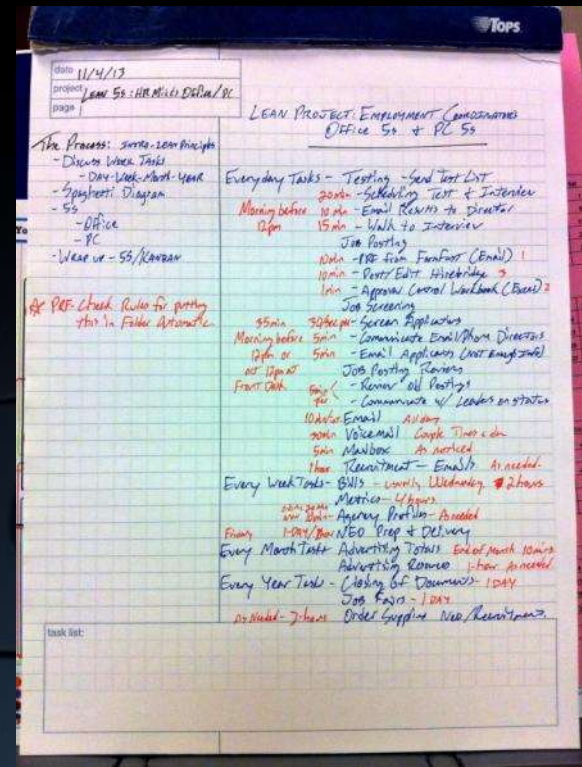 TOPS
date 11/4/13
project Lean 5s: HR Mike's Office/PC
page
LEAN PROJECT: EMPLOYMENT COORDINATORS
OFFICE 5s + PC 5s
The Process: INTRO - Lean Principles
- Discuss Work Tasks
- DAY-Week-Month-YEAR
- Spaghetti Diagram
- 5S
- Office
- PC
- Wrap up - 5S/KANBAN
PRF-Check Rules for putting
this in Folder Automatic
Everyday Tasks - Testing - Send Test List
20min - Scheduling Test & Interview
Morning before 10 min - Email Results to Director
12pm 15 min - Walk to Interview
Job Posting
10min - PRF from Formfast (Email) 1
10min - Post/Edit Hirebridge 3
1min - Approval Control Workbook (Excel) 2
Job Screening
35min 30/Sec per - Screen Applicators
Morning before 5min - Communicate Email/Phone Directors
12pm or 5min - Email Applicants (NOT Enough Info)
not 12pm at Job Posting Review
Front Desk 5min/ - Review Old Postings
per - Communicate w/ Leaders on status
Email All day
30min Voicemail Couple Times a day
5min Mailbox As noticed
1 hour Recruitment - Emails As needed.
Every Week Tasks - Bills - usually Wednesday 2 hours
Metrics - 4 hours
Agency Profiles - As needed
Friday 1-DAY/ NEO Prep & Delivery
Every Month Tasks Advertising Totals End of Month 10mins
Advertising 1-hour As needed
Every Year Tasks - Closing of Documents - 1 DAY
Job Fairs - 1 DAY
As Needed - hours Order Supplies Neo/Recruitment.
task list: